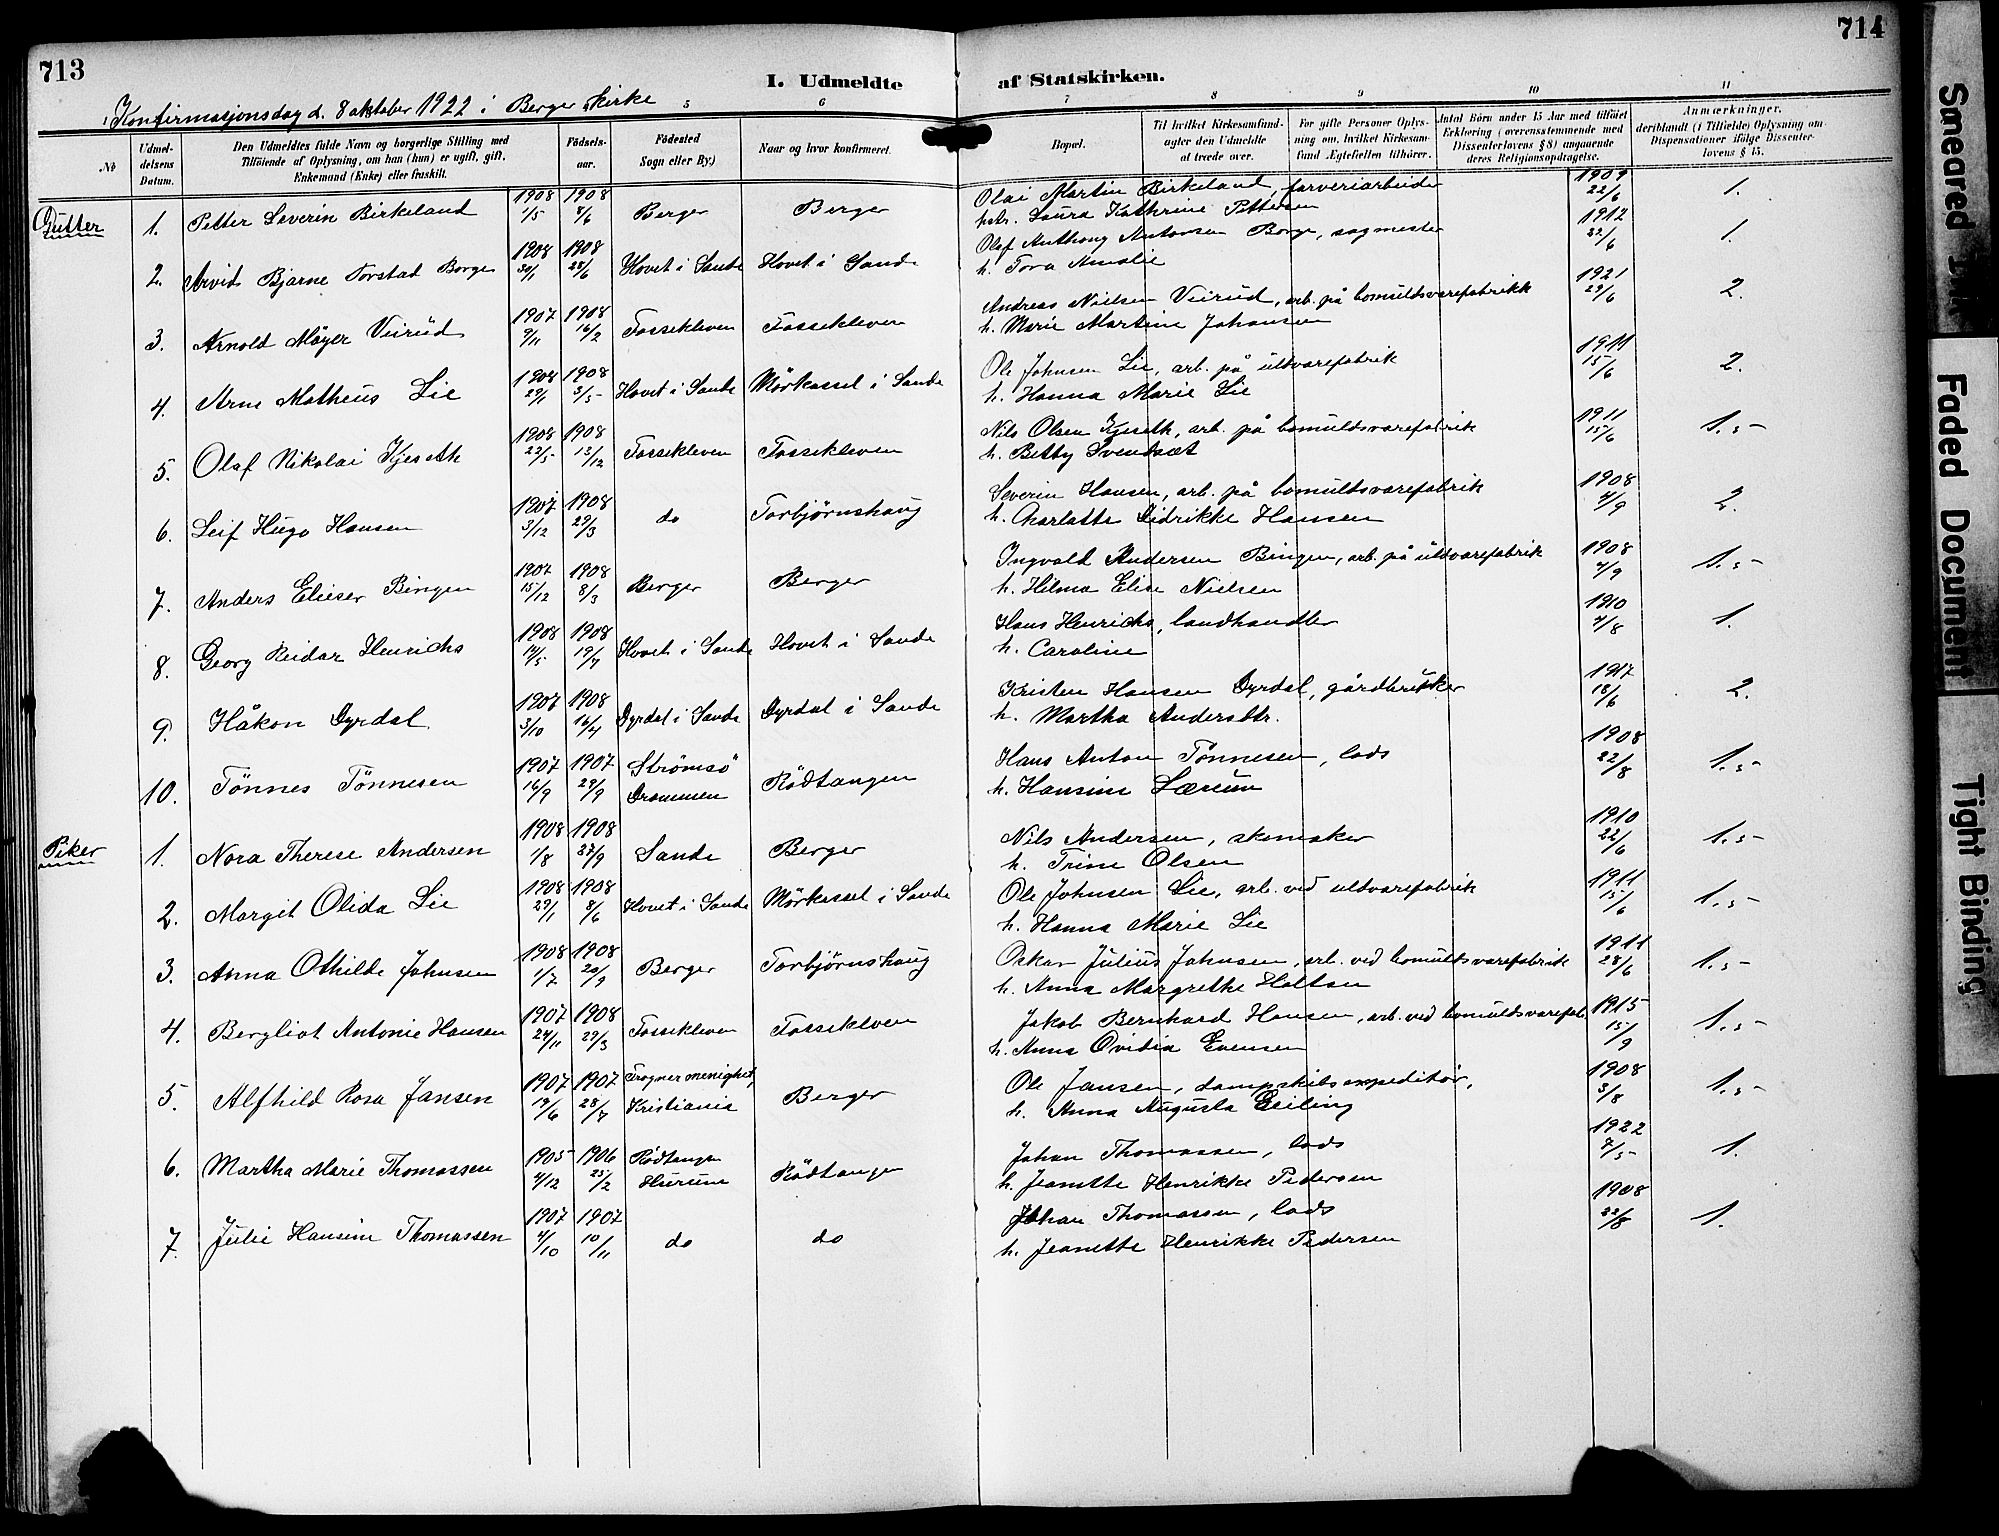 713
714
I. Udmeldte
af Statskirken.
Konfirmasjonsdag d. 8 oktober 1922 i Berger kirke
5 6 7 8 9 10 11
No
Udmel-
delsens
Datum.
Den Udmeldtes fulde Navn og borgerlige Stilling med
Tilføiende af Oplysning, om han (hun) er ugift, gift,
Enkemand (Enke) eller fraskilt.
Fødsels-
aar.
Fødested
Sogn eller By.)
Naar og hvor konfirmeret.
Bopæl.
Til hvilket Kirkesamfund
agter den Udmeldte
at træde over.
For gifte Personer Oplys-
ning om, hvilket Kirkesam-
fund Ægtefællen tilhører.
Antal Børn under 15 Aar med tilføiet
Erklæring (overensstemmende med
Dissenterlovens § 8) angaaende
deres Religionsopdragelse.
Anmærkninger,
deriblandt (i Tilfælde) Oplysning om
Dispensationer ifølge Dissenter-
lovens § 15.
Gutter
1. Petter Severin Birkeland 1908 1/5 1908 Berger Berger
Olai Martin Birkeland, farveriarbeider 1909 22/6 1.
Laura Kathrine Pettersen
2. Arvid Bjarne Torstad Borge 1908 30/1 1908 28/6 Hovet i Sande Hovet i Sande
Olaf Anthony Antonsen Borge, sagmester 1912 22/6 1.
h. Tora Amalie
3. Arnold Mäyer Veirud 1907 9/11 1908 16/2 Fossekleven Fossekleven
Andreas Nielsen Veirud, arb. på bomuldsvarefabrikk 1921 29/6 2.
h. Marie Martine Johansen
4. Arne Matheus Lie 1908 29/1 1908 3/5 Hovet i Sande Mörkassel i Sande
Ole Johnsen Lie, arb. på uldvarefabrik 1911 15/6 2.
h. Hanna Marie Lie
5. Olaf Nikolai Kjeseth 1908 22/5 1908 13/12 Fossekleven Fossekleven
Nils Olsen Kjeseth, arb. på bomuldsvarefabrik 1911 15/6 1.5
h. Betty Svendsæt
6. Leif Hugo Hansen 1907 3/12 1908 29/3 do Torbjørnshaug
Severin Hansen, arb. på bomuldsvarefabrik 1908 4/9 2.
h. Charlotte Didrikke Hansen
7. Anders Elieser Bingen 1907 15/12 1908 8/3 Berger Berger
Ingvald Andersen Bingen, arb. på uldvarefabrik 1908 4/9 1.5
h. Hilma Elise Nielsen
8. Georg Reidar Henrichs 1908 14/5 1908 19/7 Hovet i Sande Hovet i Sande
Hans Henrichs, landhandler 1910 4/8 1.
h. Caroline
9. Håkon Dyrdal 1907 3/10 1908 16/4 Dyrdal i Sande Dyrdal i Sande
Kristen Hansen Dyrdal, gårdbruker 1917 18/6 2.
h. Martha Andersdtr.
10. Tönnes Tönnesen 1907 16/9 1907 29/9 Strömsö Drammen Rödtangen
Hans Anton Tönnesen, lods 1908 22/8 1.5
h. Hansine Lærum
Piker
1. Nora Therese Andersen 1908 1/8 1908 27/9 Sande Berger
Nils Andersen, skomaker 1910 22/6 1.5
h. Trine Olsen
2. Margit Olida Lie 1908 29/1 1908 8/6 Hovet i Sande Mörkassel i Sande
Ole Johnsen Lie, arb. ved uldvarefabrik 1911 15/6 1.5
h. Hanna Marie Lie
3. Anna Othilde Johnsen 1908 1/7 1908 20/9 Berger Torbjörnshaug
Oskar Julius Johnsen, arb. ved bomuldsvarefabrik 1911 28/6 1.5
h. Anna Margrethe Holtan
4. Bergliot Antonie Hansen 1907 24/11 1908 29/3 Fossekleven Fossekleven
Jakob Bernhard Hansen, arb. ved bomuldsvarefab. 1915 15/9 1.5
h. Anna Ovidia Evensen
5. Alfhild Rosa Jansen 1907 19/6 1907 28/7 Frogner menighet, Kristiania Berger
Ole Jansen, dampskibsexpeditör, 1908 3/8 1.5
h. Anna Augusta Eeiling
6. Martha Marie Thomassen 1905 4/12 1906 25/2 Rödtangen Hurum Rödtangen
Johan Thomassen, lods 1922 7/5 1.
h. Jeanette Henrikke Pedersen
7. Julie Hansine Thomassen 1907 4/10 1907 10/11 do do
Johan Thomassen, lods 1908 22/8 1.
h. Jeanette Henrikke Pedersen
Smeared Ink
Faded Document
Tight Binding